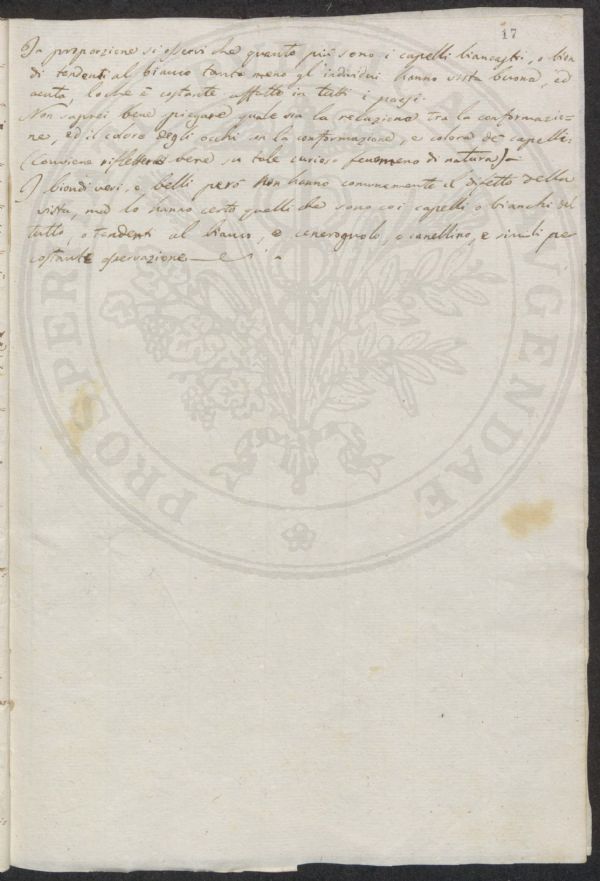 17
In proporzione si osservi che quanto più sono i capelli biancastri, o ben
di tendenti al bianco tanto meno gl'individui hanno vista buona, ed
acuta, loche è costante affatto in tutti i paesi.
Non saprei bene spiegare quale sia la relazione tra la conformazio=
ne, ed il colore degli occhi con la conformazione, e colore de capelli:
(Conviene riflettere bene su tale curioso fenomeno di natura)
I biondi veri, e belli però non hanno comunemente il difetto della
vista, ma lo hanno certo quelli che sono coi capelli o bianchi del
tutto, o tendenti al bianco, e cenerognolo, o canellino, e simili per
costante osservazione
PROSPER
AUGENDAE